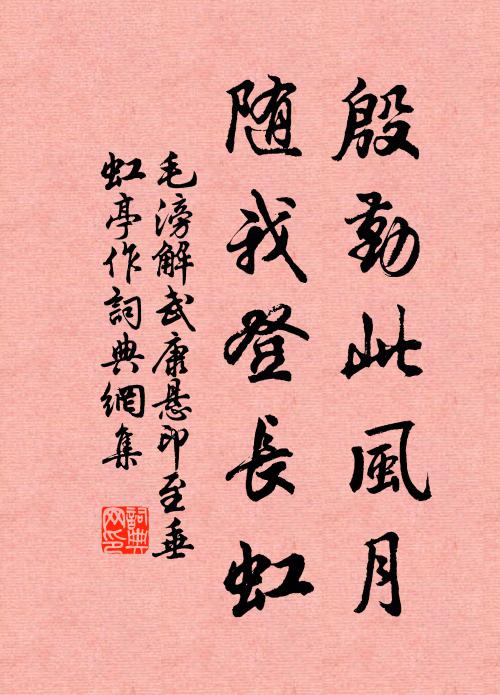 殷勤此風月
随我登長虹
毛滂解武康悬印至垂
虹亭作詞典網集
詞典网印